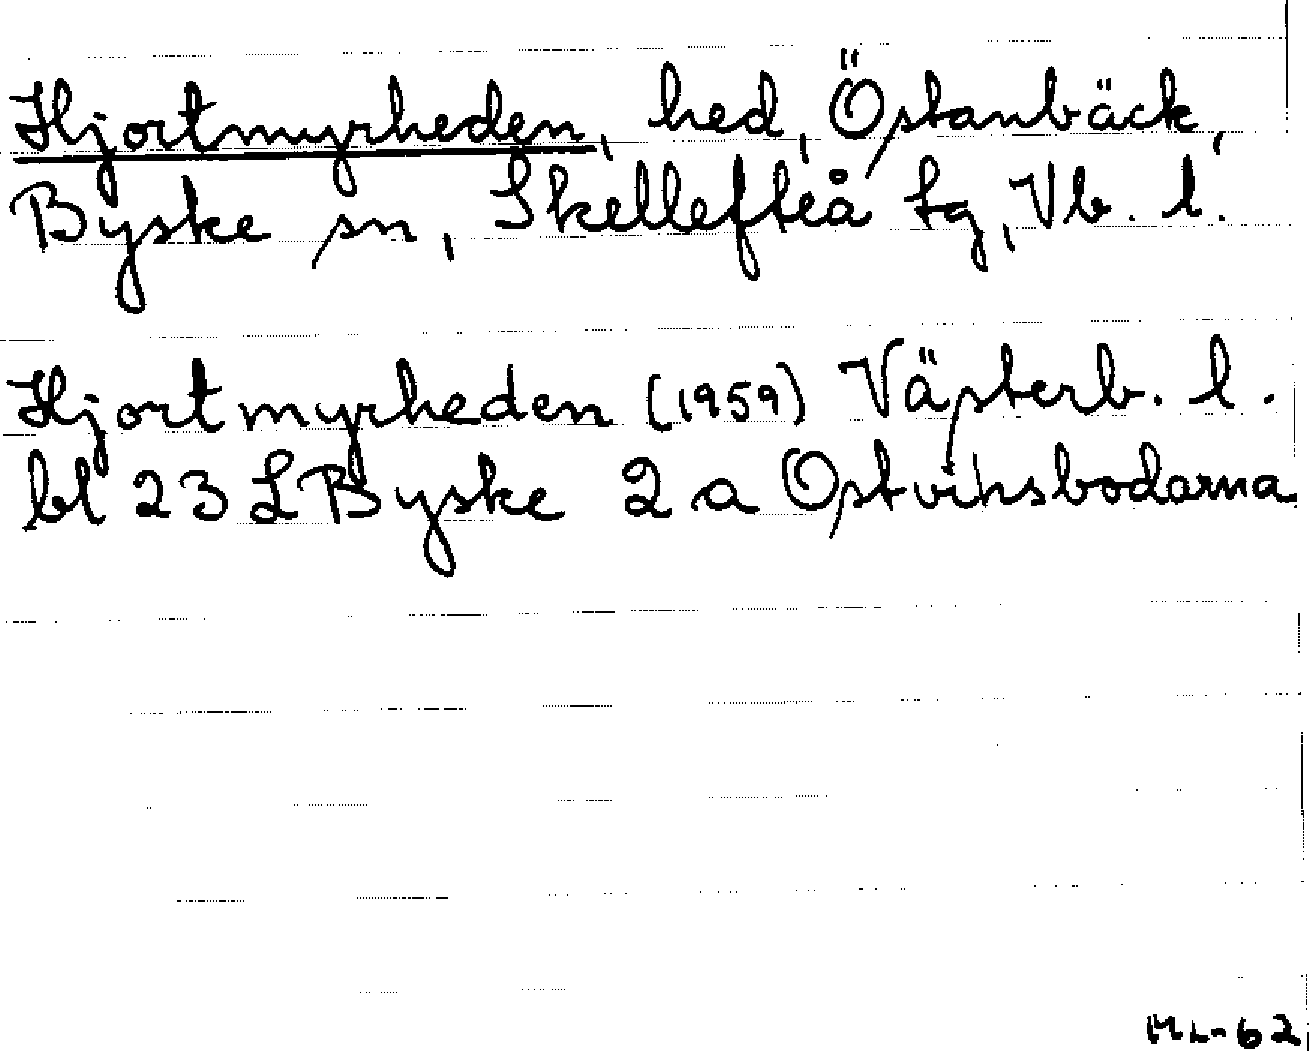 Hjortmyrheden, hed, Östanbäck,
Byske sn, Skellefteå tg, Vb. l.
Hjortmyrheden (1959) Västerb. l.
bl 23 L Byske 2 a Ostviksbodarna
ML-62